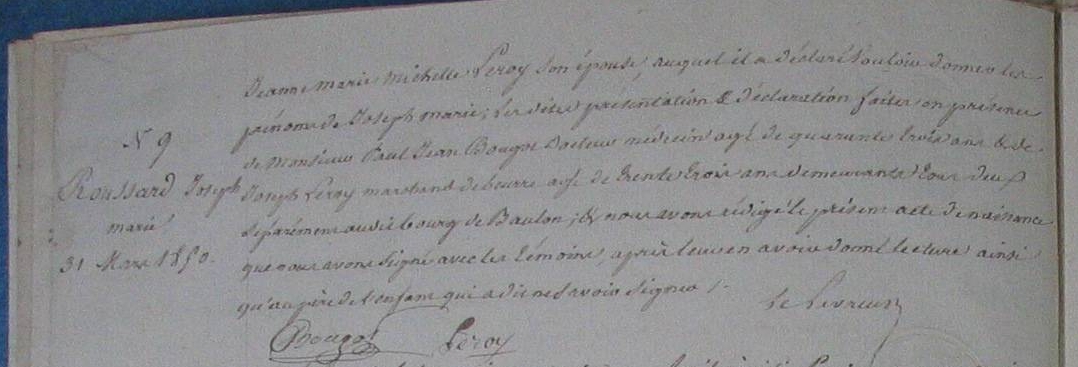 N 9
Roussard Joseph
marie
31 Mars 1850.
Jeanne marie michelle Leroy son épouse, auquel il a déclaré vouloir donner les
prénoms de Joseph marie; Les dites présentation & déclaration faites en présence
de Monsieur Paul Jean Bougot Docteur médecin agé de quarante trois ans & de
Joseph Leroy marchand de beurre agé de trente trois ans demeurants tous deux
séparément au dit bourg de Baulon; & nous avons rédigé le présent acte de naissance
que nous avons signé avec les témoins, après leur en avoir donné lecture ainsi
qu'au père de l'enfant qui a dit ne savoir signer ;.
Bougot Leroy